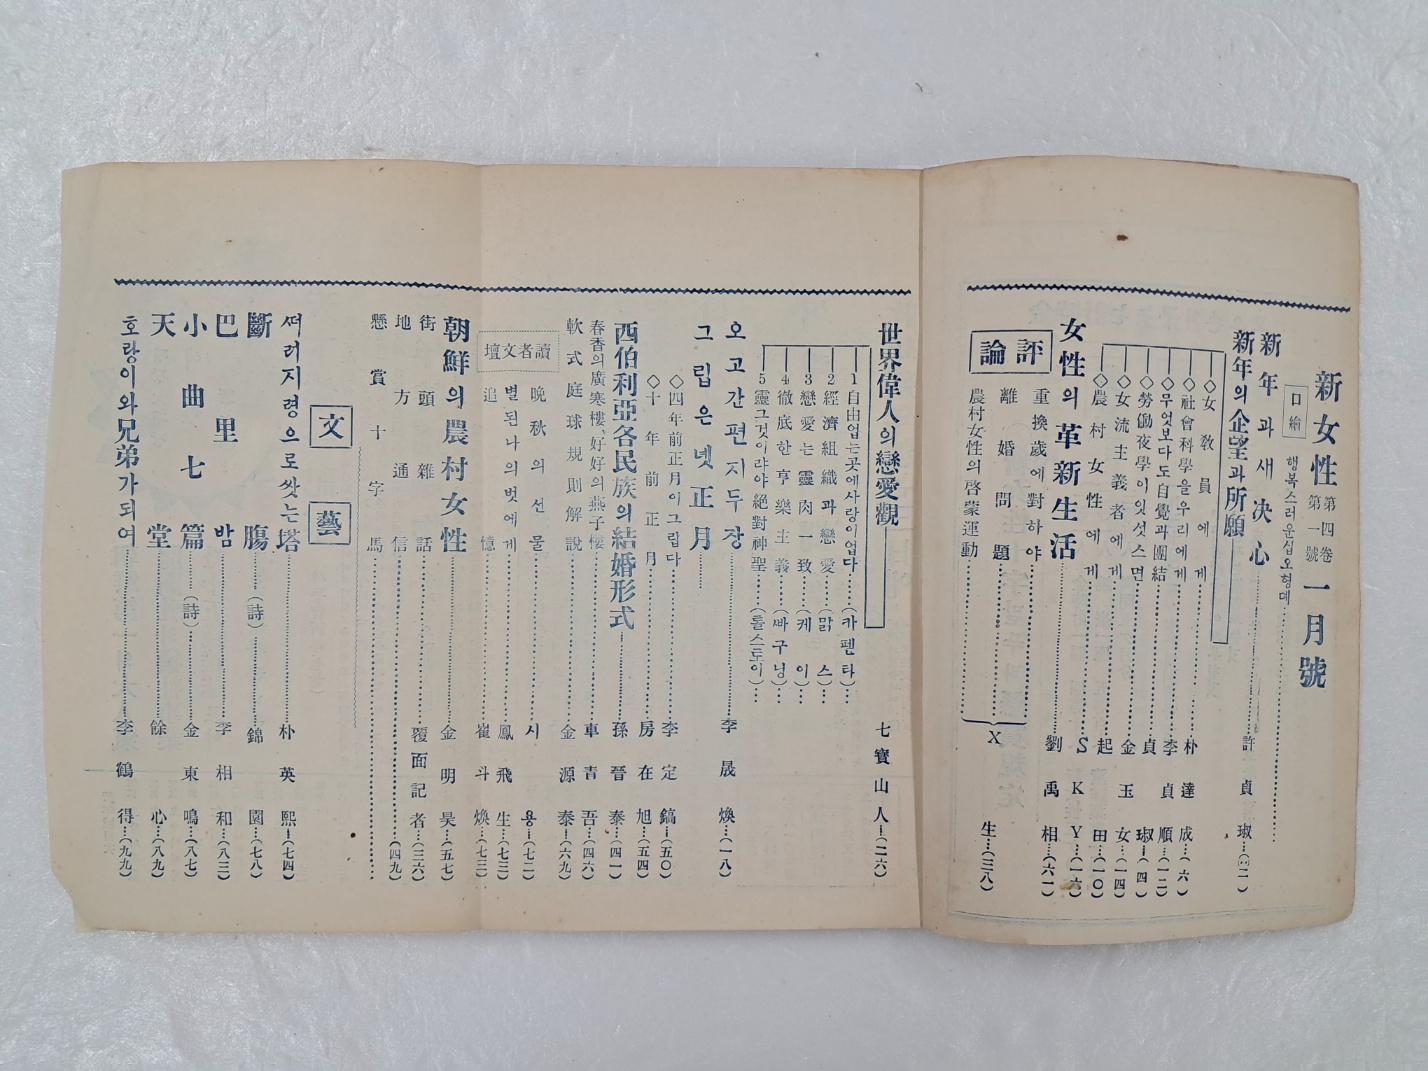 新女性 第四卷 第一號 一月號
口繪 행복스러운십오형뎨
新年과새决心 許貞琡…(二)
新年의企望과所願
◇女敎員에게 朴達成…(六)
◇社會科學을우리에게 李貞順…(一二)
◇무엇보다도自覺과團結 貞琡…(四)
◇勞働夜學이잇섯스면 金玉女…(一四)
◇女流主義者에게 起田…(一〇)
◇農村女性에게 SKY…(一六)
女性의革新生活 劉禹相…(六一)
評論
重換歲에對하야
離婚問題
農村女性의啓蒙運動
X生…(三八)
世界偉人의戀愛觀 七寶山人…(二六)
1 自由업는곳에사랑이업다……(카펜타)…
2 經濟組織과戀愛……(맑스)…
3 戀愛는靈肉一致……(케이)…
4 徹底한亨樂主義……(빠구닝)…
5 靈그것이라야絕對神聖……(톨스토이)…
오고간편지두장 李晟煥…(一八)
그립은녯正月
◇四年前正月이그립다 李定鎬…(五〇)
◇十年前正月 房在旭…(五四)
西伯利亞各民族의結婚形式 孫晉泰…(四一)
春香의廣寒樓、好好의燕子樓 車青吾…(四六)
軟式庭球規則解說 金源泰…(六九)
讀者文壇
晩秋의선물 시용…(七二)
별된나의벗에게 鳳飛生…(七三)
追憶 崔斗煥…(七三)
朝鮮의農村女性 金明昊…(五七)
街頭雜話 覆面記者…(三六)
地方通信 (四九)
懸賞十字馬
文藝
써러지령으로쌋는塔 朴英熙…(七四)
斷膓…(詩) 錦園…(七八)
巴里밤 李相和…(八三)
小曲七篇…(詩) 金東鳴…(八七)
天堂 餘心…(八九)
호랑이와兄弟가되여 李鶴得…(九九)